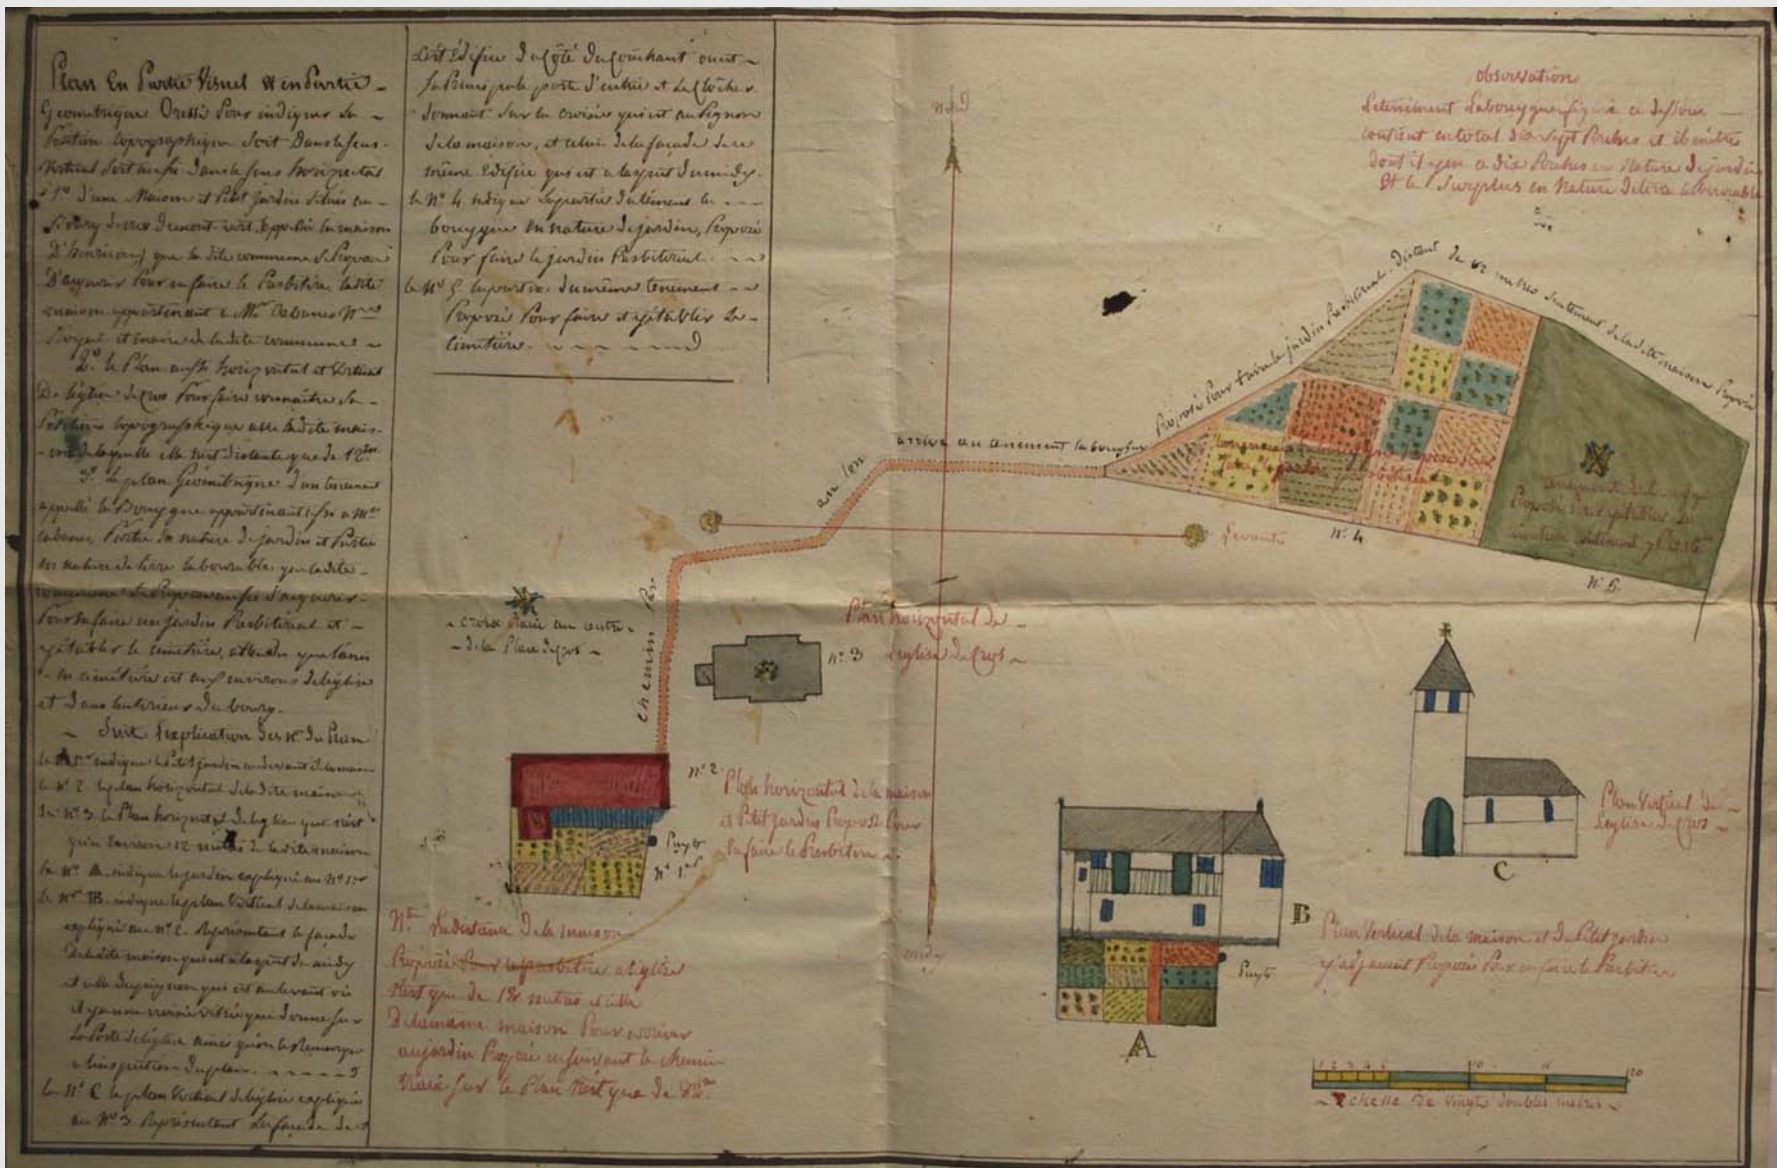 Plan En Partie Visuel et en Partie
Geometrique Dressé Pour indiquer la
Position topographique soit Dans le sens
Vertical soit aussi dans le sens horizontal
1º d'une Maison et Petit jardin situés au
Bourg de cros de
que la dite commune de Propose
D'aquerir Pour en faire le Presbitère la dite
maison appartenant a Mr Cabanes
et maire de la dite commune
2º le Plan aussi horizontal et Vertical
De l'église de Cros Pour faire connaître sa
Position topographique avec la dite mais-
-on de laquelle elle n'est distante que de 12 m
3º Le plan Géométrique d'un tenement
appellé la Bouygue appartenant aussi a Mr
Cabanes, Partie en nature de jardin et Partie
en nature de terre labourable que la dite
commune se Propose aussi d'aquerir
Pour en faire un jardin Presbiterial et
y établir le cimetière, attendu que l'ancien
cimétière est aux environs de l'église
et dans l'intérieur du bourg.
Suit l'explication des Nos du Plan
le 1er indique le Petit jardin au devant de la maison
le Nº 2 le plan horizontal de la dite maison
Le Nº 3 le Plan horizontal de l'église qui n'est
qu'a Environ 12 mètres de la dite maison
le Nº A indique le jardin expliqué au Nº 1er
le Nº B indique le plan Vertical de la maison
expliqué au Nº 2 Représentant la façade
De la dite maison qui est a l'aspect du midy
et celle du pignon qui est au levant où
il y a une croisée vitrée qui donne sur
La Porte de l'église ainsi qu'on le Remarque
a l'inspection du plan
le Nº C le plan Vertical de l'église expliqué
au Nº 3 Représentant la façade de
cet édifice du côté du Couchant ou est
la Principale porte d'entrée et le Clocher
donnant sur la croisée qui est au Pignon
de la maison, et celui de la façade de ce
même Edifice qui est a l'aspect du midy.
le Nº 4 indique la partie du tenement la
bouygue en nature de jardin, Proposé
Pour faire le jardin Presbiterial
le Nº 5 la partie du même tenement
Proposé Pour faire et y établir le
Cimetière.
nord
observation
Le tenement Labouygue figuré ci dessous
contient en total dix sept Perches et 16 mètres
dont il y en a dix Perches en Nature de jardin
Et le Surplus en Nature de terre labourable
Proposé Pour faire le jardin Presbiterial. Distant de 82 metres seulement de la dite maison Proposée
arrive au tenement la bouygue
a su lon
chemin Par
Levant
Nº 4
Nº 5
croix Placée au centre
de la Place de Cros
Nº 3
Plan horizontal de
l'église de Cros
Nº 2
Plan horizontal de la maison
et Petit jardin Proposé Pour
En faire le Presbitère
Puyts
Nº 1er
Nta La distance de la maison
Proposée Pour le presbitère a l'église
N'est que de 12 metres et celle
De la même maison Pour arriver
au jardin Proposé en suivant le chemin
tracé sur le Plan N'est que de 82 m
midy
Plan Vertical de
l'église de Cros
C
B
Plan Vertical de la maison et du Petit jardin
y adjacent Proposés Pour en faire le Presbitère
Puyts
A
1 2 3 4 5 10 15 20
Echelle de Vingt doubles metres